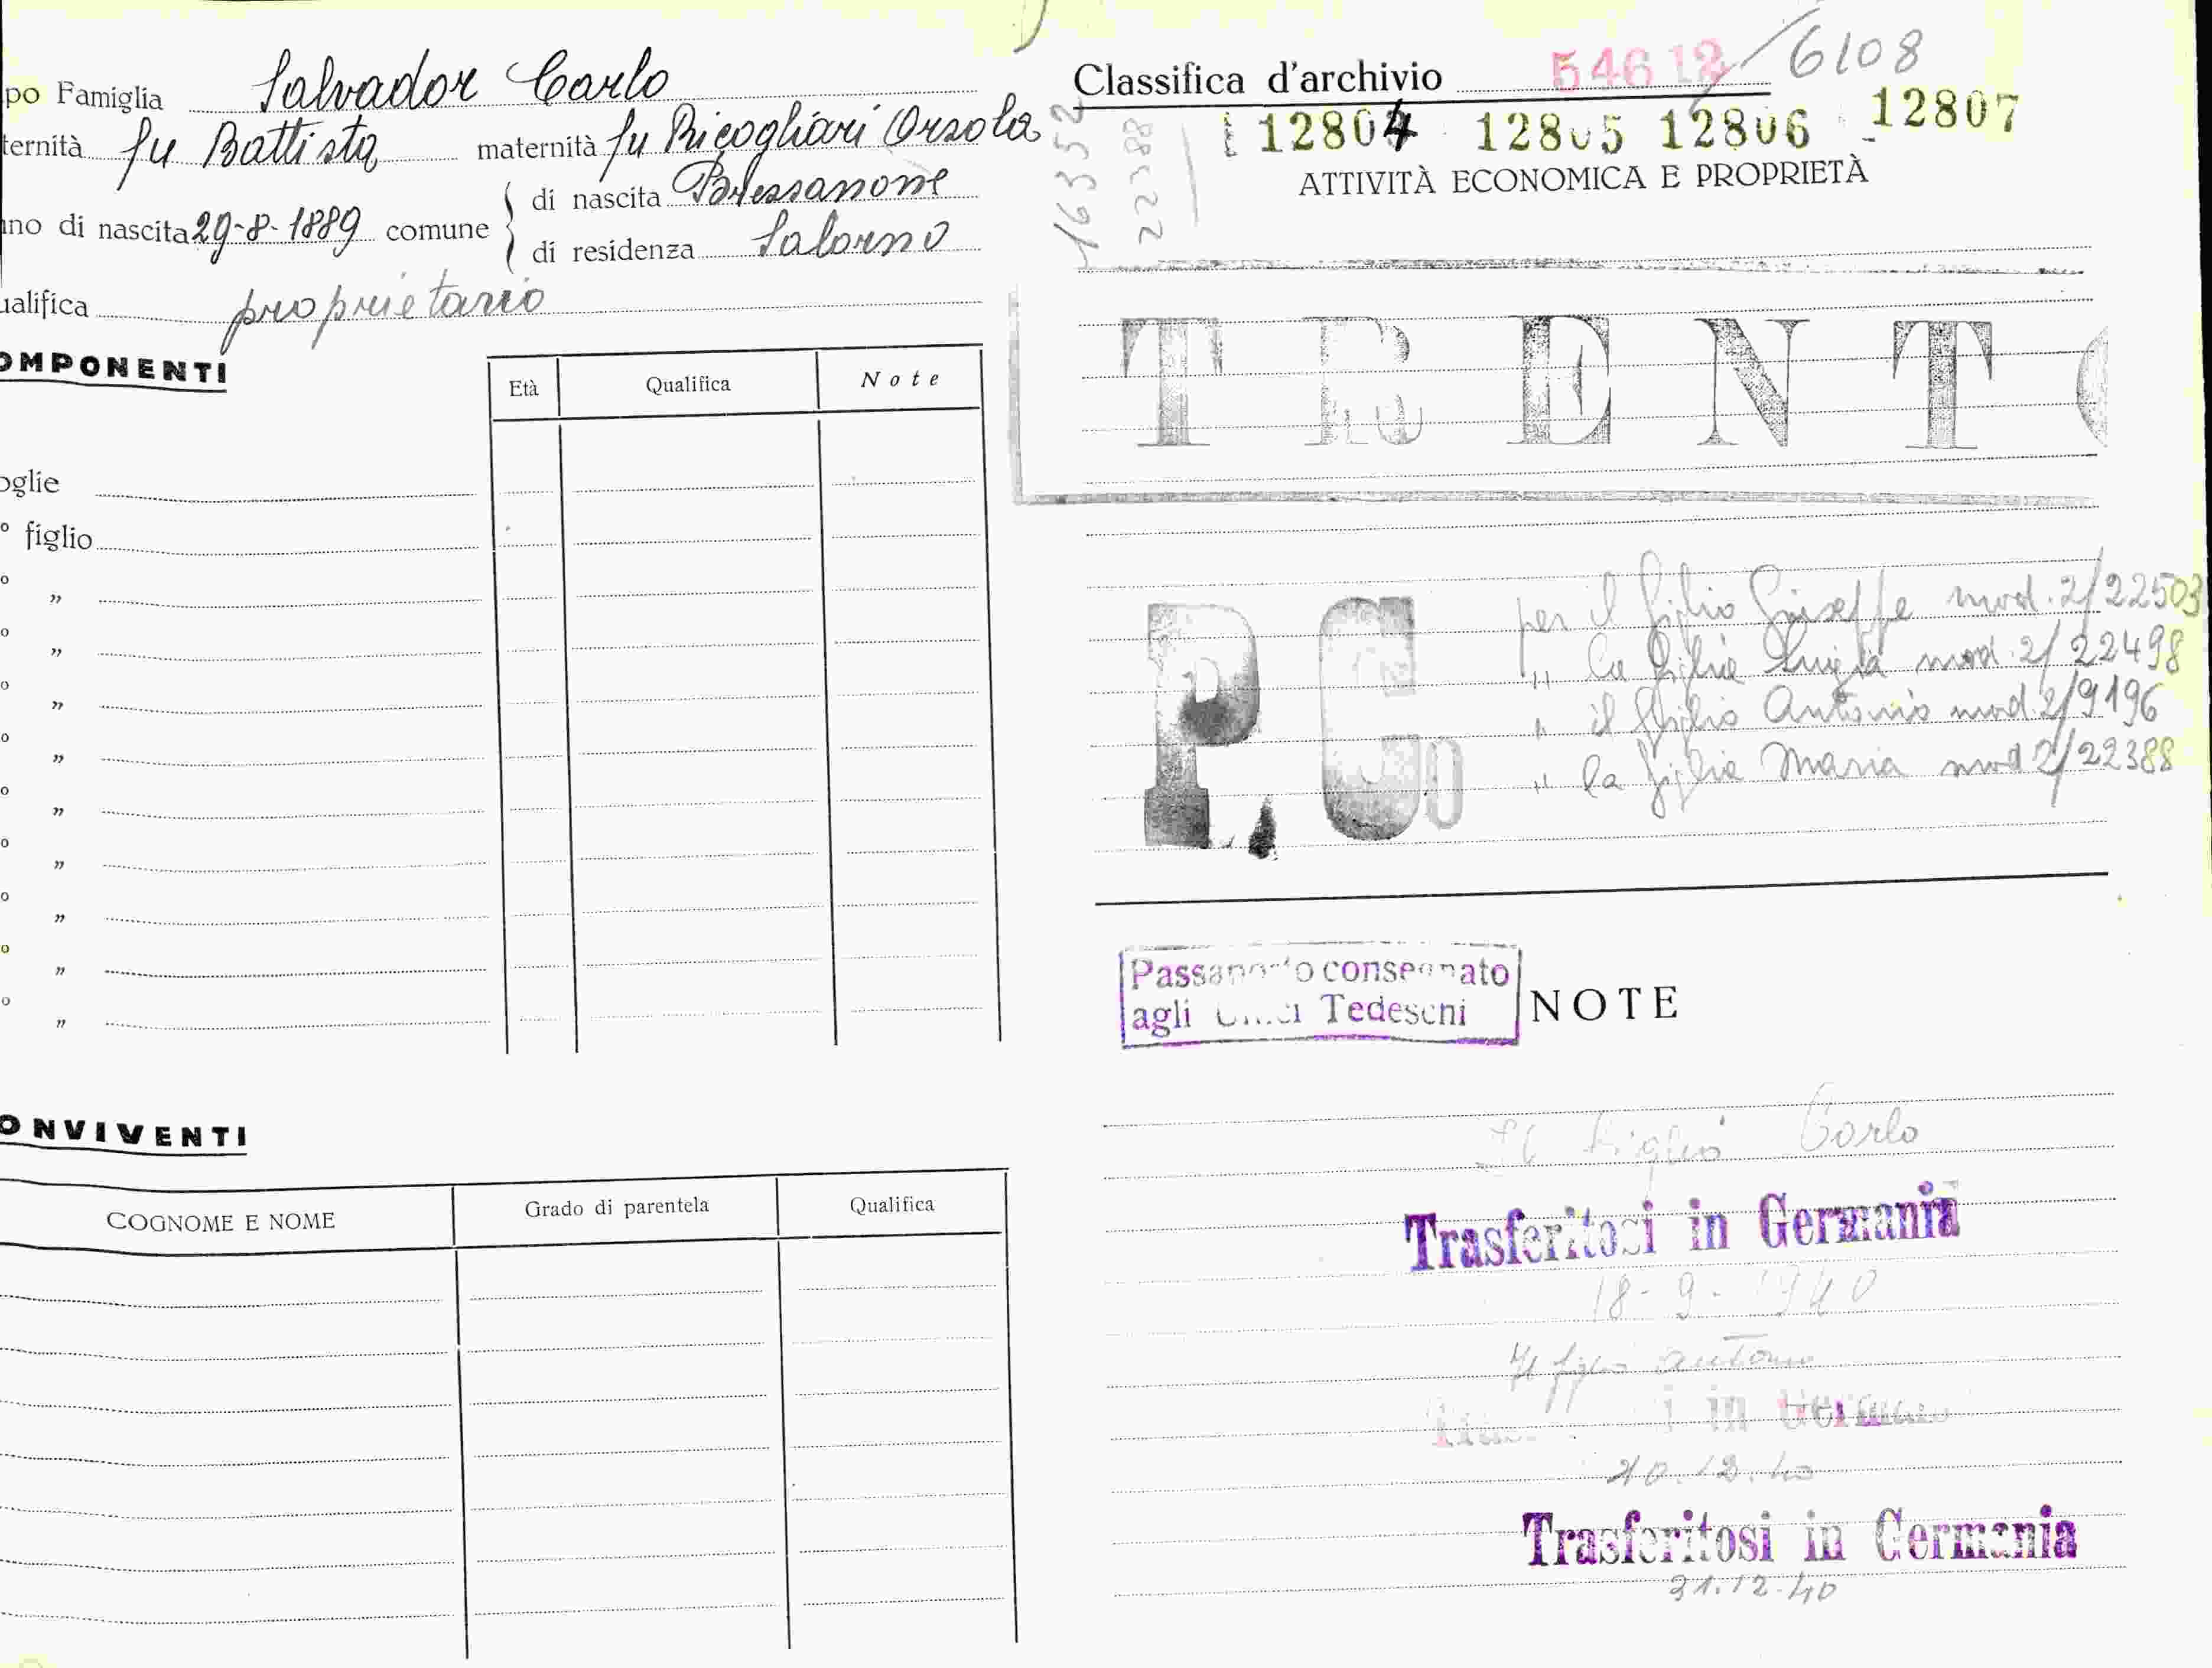 po Famiglia Salvador Carlo
ternità fu Battista maternità fu Ricogliari Orsola
no di nascita 29-8-1889 comune di nascita Bressanone
di residenza Salorno
ualifica proprietario
OMPONENTI
Età Qualifica Note
oglie
° figlio
° „
° „
° „
° „
° „
° „
° „
° „
° „
ONVIVENTI
COGNOME E NOME Grado di parentela Qualifica
Classifica d'archivio 54612/6108
12804 12805 12806 12807
16352
22388
ATTIVITÀ ECONOMICA E PROPRIETÀ
TRENTO
P.C.
per il figlio Giuseppe mod. 2/22503
„ la figlia Luigia mod. 2/22498
„ il figlio Antonio mod. 2/9196
„ la figlia Maria mod 2/22388
Passaporto consegnato
agli Uffici Tedeschi
NOTE
Il figlio Carlo
Trasferitosi in Germania
18-9-1940
Il figlio Antonio
Trasferitosi in Germania
20.12.40
Trasferitosi in Germania
31.12.40